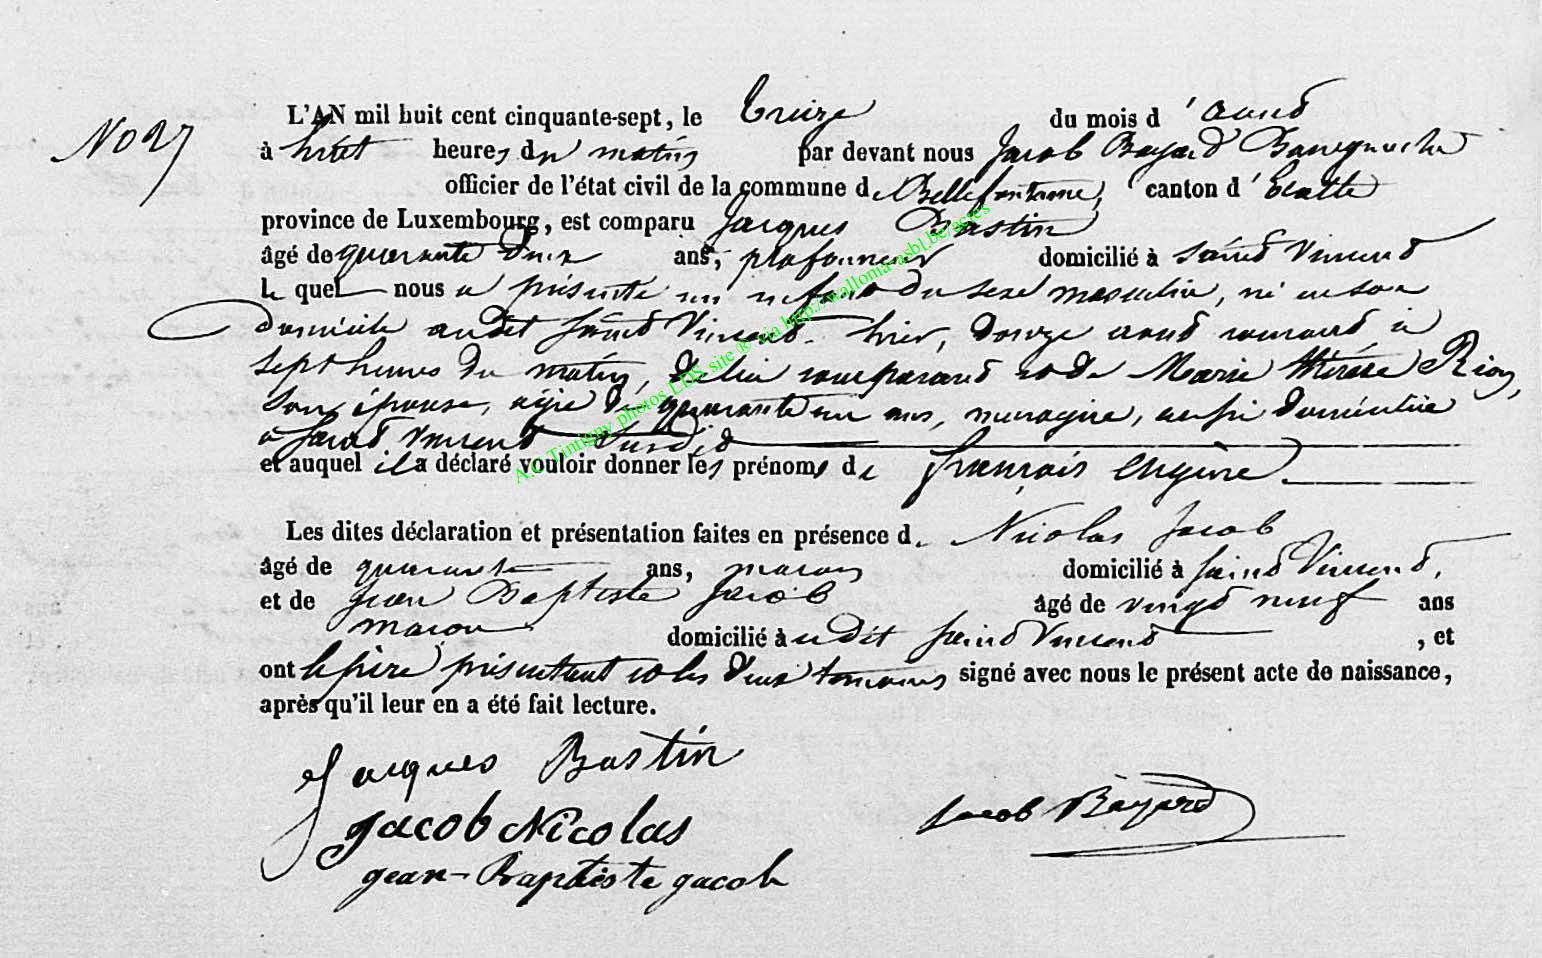 No 27
L'AN mil huit cent cinquante-sept, le treize du mois d'aout
à huit heures du matin par devant nous Jacob Bayard Bourgmestre
officier de l'état civil de la commune de Bellefontaine, canton d'Etalle
province de Luxembourg, est comparu Jacques Bastin
âgé de quarante deux ans, plafonneur domicilié à Saint Vincent
le quel nous a présenté un enfant du sexe masculin, né en son
domicile audit Saint Vincent hier, douze aout courant à
sept heures du matin, de lui comparant et de Marie thérèse Rion,
son épouse, agée de quarante un ans, menagère, aussi domiciliée
à Saint Vincent susdit
et auquel il a déclaré vouloir donner les prénoms de françois Eugène
Les dites déclaration et présentation faites en présence de Nicolas Jacob
âgé de quarante ans, maçon domicilié à Saint Vincent,
et de Jean Baptiste Jacob âgé de vingt neuf ans
maçon domicilié audit Saint Vincent, et
ont le père présentant et les deux temoins signé avec nous le présent acte de naissance,
après qu'il leur en a été fait lecture.
Jacques Bastin
Jacob Nicolas
Jacob Bayard
jean-Baptiste jacob
A.C. Tintigny photos LDS site ® via http://wallonia-asbl.be/actes